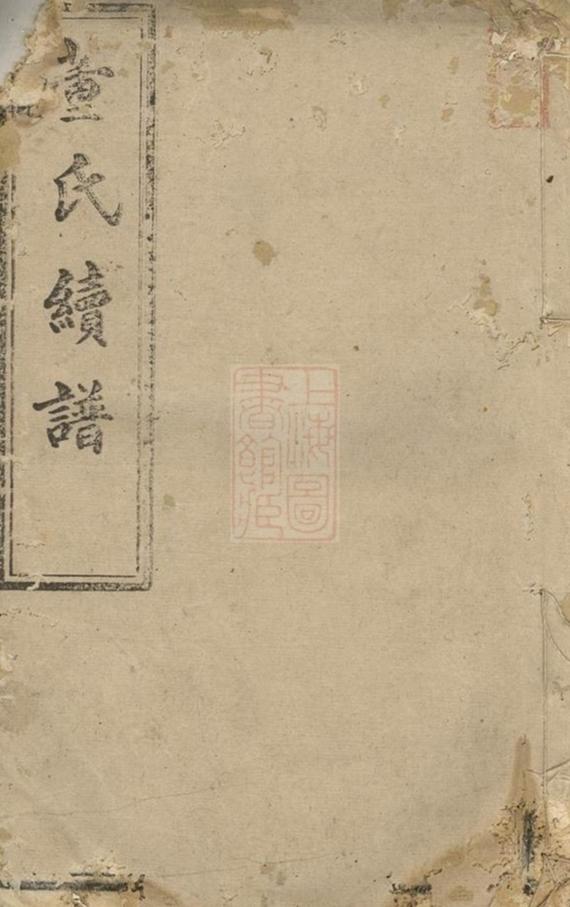 查氏續譜
上海圖
書館藏